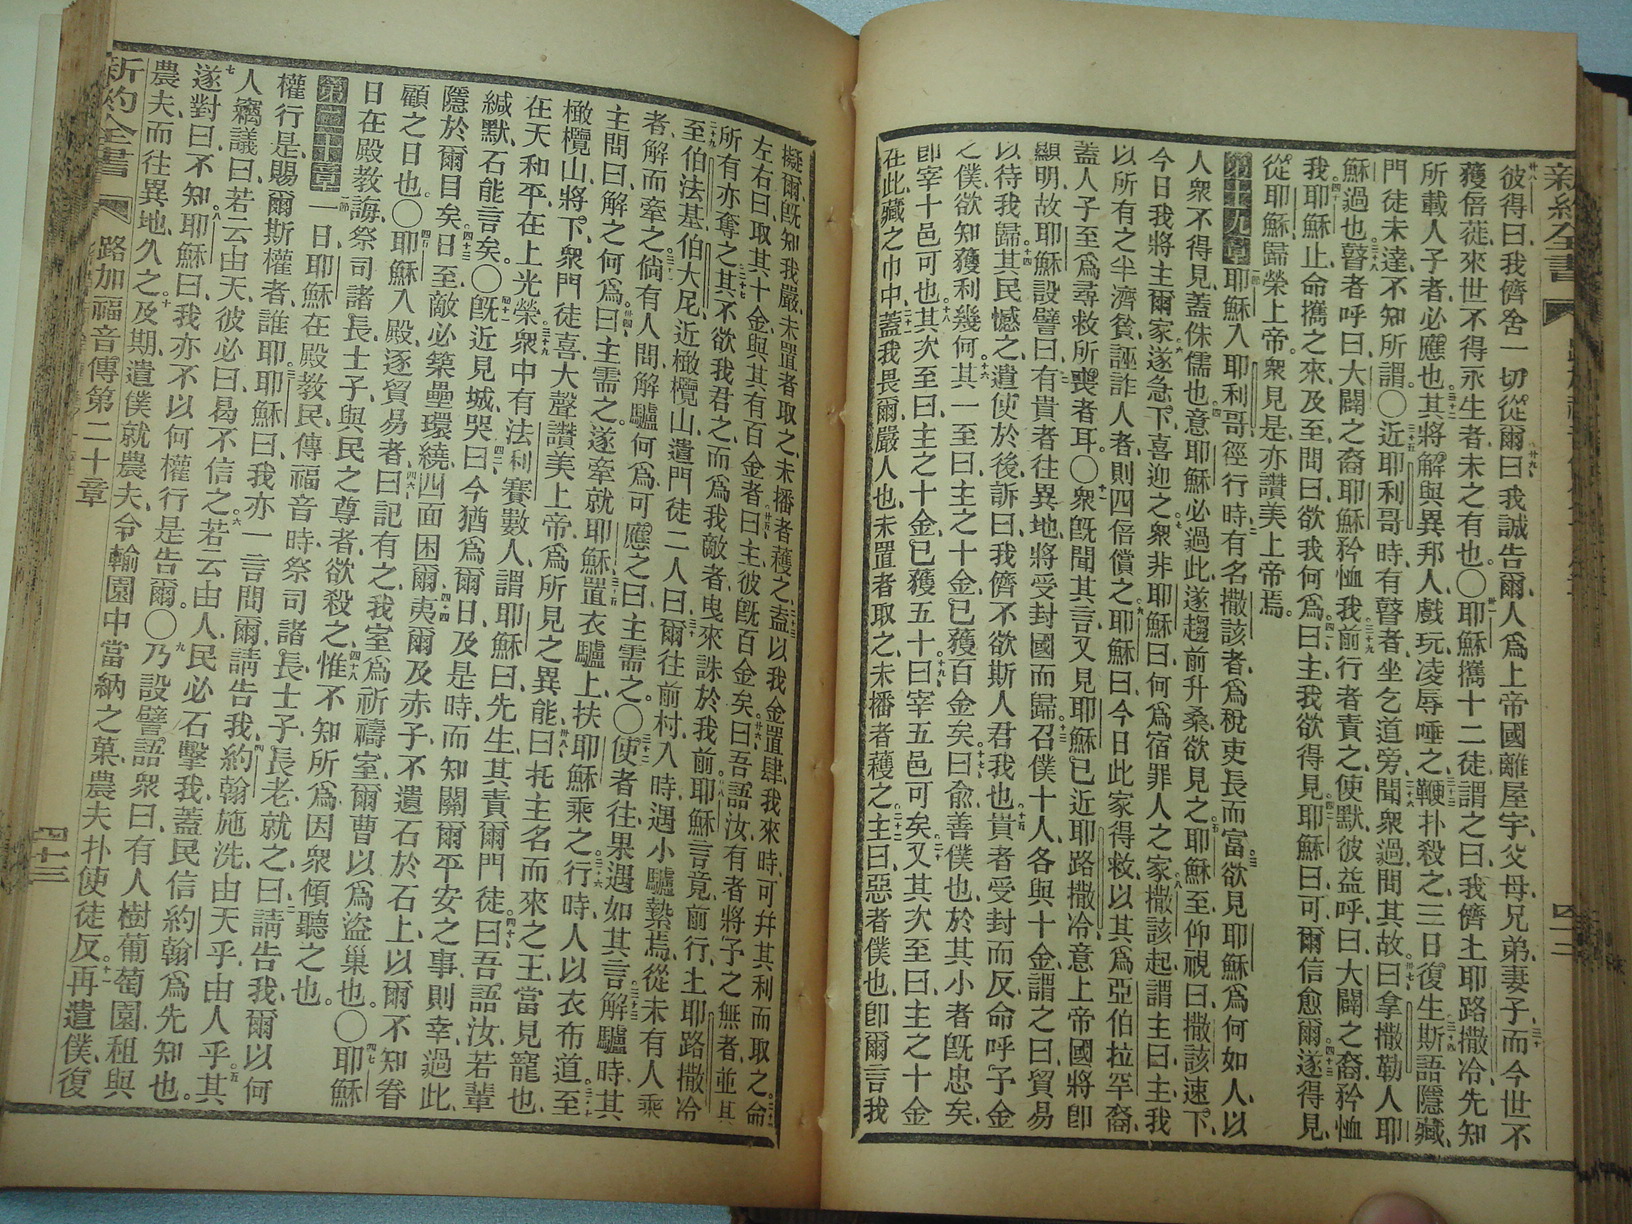 新約全書
彼得曰、我儕舍一切、從爾、曰、我誠告爾、人爲上帝國、離屋宇、父母、兄弟、妻子、而今世不
獲倍蓰、來世不得永生者、未之有也。〇耶穌攜十二徒、謂之曰、我儕上耶路撒冷、先知
所載人子者、必應也、其將解與異邦人、戲玩凌辱、唾之、鞭扑殺之、三日復生、斯語隱藏、
門徒未達、不知所謂。〇近耶利哥時、有瞽者坐乞道旁、聞衆過、問其故、曰、拿撒勒人耶
穌過也、瞽者呼曰、大闢之裔耶穌、矜恤我、前行者責之、使默、彼益呼曰、大闢之裔、矜恤
我、耶穌止、命攜之來、及至、問曰、欲我何爲、曰、主、我欲得見、耶穌曰、可、爾信愈爾、遂得見、
從耶穌、歸榮上帝、衆見是、亦讚美上帝焉。
第十九章 耶穌入耶利哥、徑行時、有名撒該者、爲稅吏長而富、欲見耶穌爲何如人、以
人衆不得見、蓋侏儒也、意耶穌必過此、遂趨前升桑、欲見之、耶穌至、仰視曰、撒該速下、
今日我將主爾家、遂急下、喜迎之、衆非耶穌曰、何爲宿罪人之家、撒該起、謂主曰、主、我
以所有之半濟貧、誣詐人者、則四倍償之、耶穌曰、今日此家得救、以其爲亞伯拉罕裔、
蓋人子至、爲尋救所喪者耳。〇衆旣聞其言、又見耶穌已近耶路撒冷、意上帝國將卽
顯明、故耶穌設譬曰、有貴者往異地、將受封國而歸、召僕十人、各與十金、謂之曰、貿易
以待我歸、其民憾之、遣使於後、訴曰、我儕不欲斯人君我也、貴者受封而反、命呼予金
之僕、欲知獲利幾何、其一至曰、主之十金、已獲百金矣、曰、俞、善僕也、於其小者旣忠矣、
卽宰十邑可也、其次至曰、主之十金、已獲五十、曰、宰五邑可矣、又其次至曰、主之十金
在此、藏之巾中、蓋我畏爾嚴人也、未置者取之、未播者穫之、主曰、惡者僕也、卽爾言我
擬爾、旣知我嚴、未置者取之、未播者穫之、盍以我金置肆、我來時、可幷其利而取之、命
左右曰、取其十金、與其有百金者、曰、主、彼旣百金矣、曰、吾語汝、有者將予之、無者、並其
所有亦奪之、其不欲我君之、而爲我敵者、曳來誅於我前、耶穌言竟、前行、上耶路撒冷、
至伯法基、伯大尼、近橄欖山、遣門徒二人曰、爾往前村、入時、遇小驢縶焉、從未有人乘
者、解而牽之、倘有人問解驢何爲、可應之曰、主需之。〇使者往、果遇如其言、解驢時、其
主問曰、解之何爲、曰、主需之、遂牽就耶穌、置衣驢上、扶耶穌乘之、行時、人以衣布道、至
橄欖山、將下、衆門徒喜、大聲讚美上帝、爲所見之異能、曰、托主名而來之王、當見寵也、
在天和平、在上光榮、衆中有法利賽數人、謂耶穌曰、先生、其責爾門徒、曰、吾語汝、若輩
緘默、石能言矣。〇旣近見城、哭曰、今猶爲爾日、及是時、而知關爾平安之事則幸、過此、
隱於爾目矣、日至、敵必築壘環繞、四面困爾、夷爾及赤子、不遺石於石上、以爾不知眷
顧之日也。〇耶穌入殿、逐貿易者、曰、記有之、我室爲祈禱室、爾曹以爲盜巢也。〇耶穌
日在殿敎誨、祭司諸長、士子、與民之尊者、欲殺之、惟不知所爲、因衆傾聽之也。
第二十章 一日、耶穌在殿敎民、傳福音時、祭司諸長、士子、長老、就之曰、請告我、爾以何
權行是、賜爾斯權者誰、耶穌曰、我亦一言問爾、請告我、約翰施洗、由天乎、由人乎、其
人竊議曰、若云由天、彼必曰、曷不信之、若云由人、民必石擊我、蓋民信約翰爲先知也。
遂對曰、不知、耶穌曰、我亦不以何權行是告爾。〇乃設譬語衆曰、有人樹葡萄園、租與
農夫、而往異地、久之、及期、遣僕就農夫、令輸園中當納之菓、農夫扑使徒反、再遣僕、復
新約全書 路加福音傳第二十章 四十三